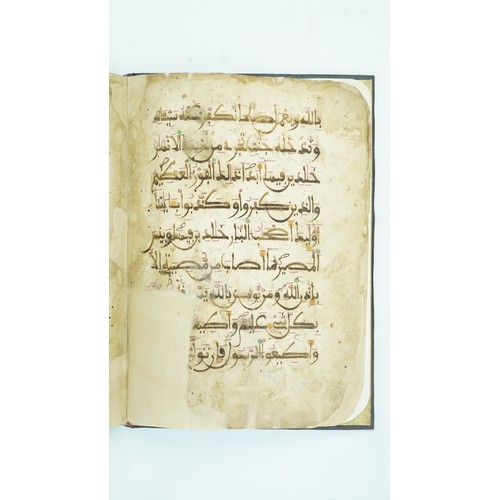 بالله ويعمل صلحا نكفر عنه سيئاته
وندخله جنت تجري من تحتها الانهر
خلدين فيها ابدا ذلك الفوز العظيم
والذين كفروا وكذبوا بئايتنا
أوليك اصحب النار خلدين فيها وبيس
المصير ما أصاب من مصيبة الا
بإذن الله ومن يومن بالله يهد
بكل شيء عليم وأطيعوا
وأطيعوا الرسول فإن تول